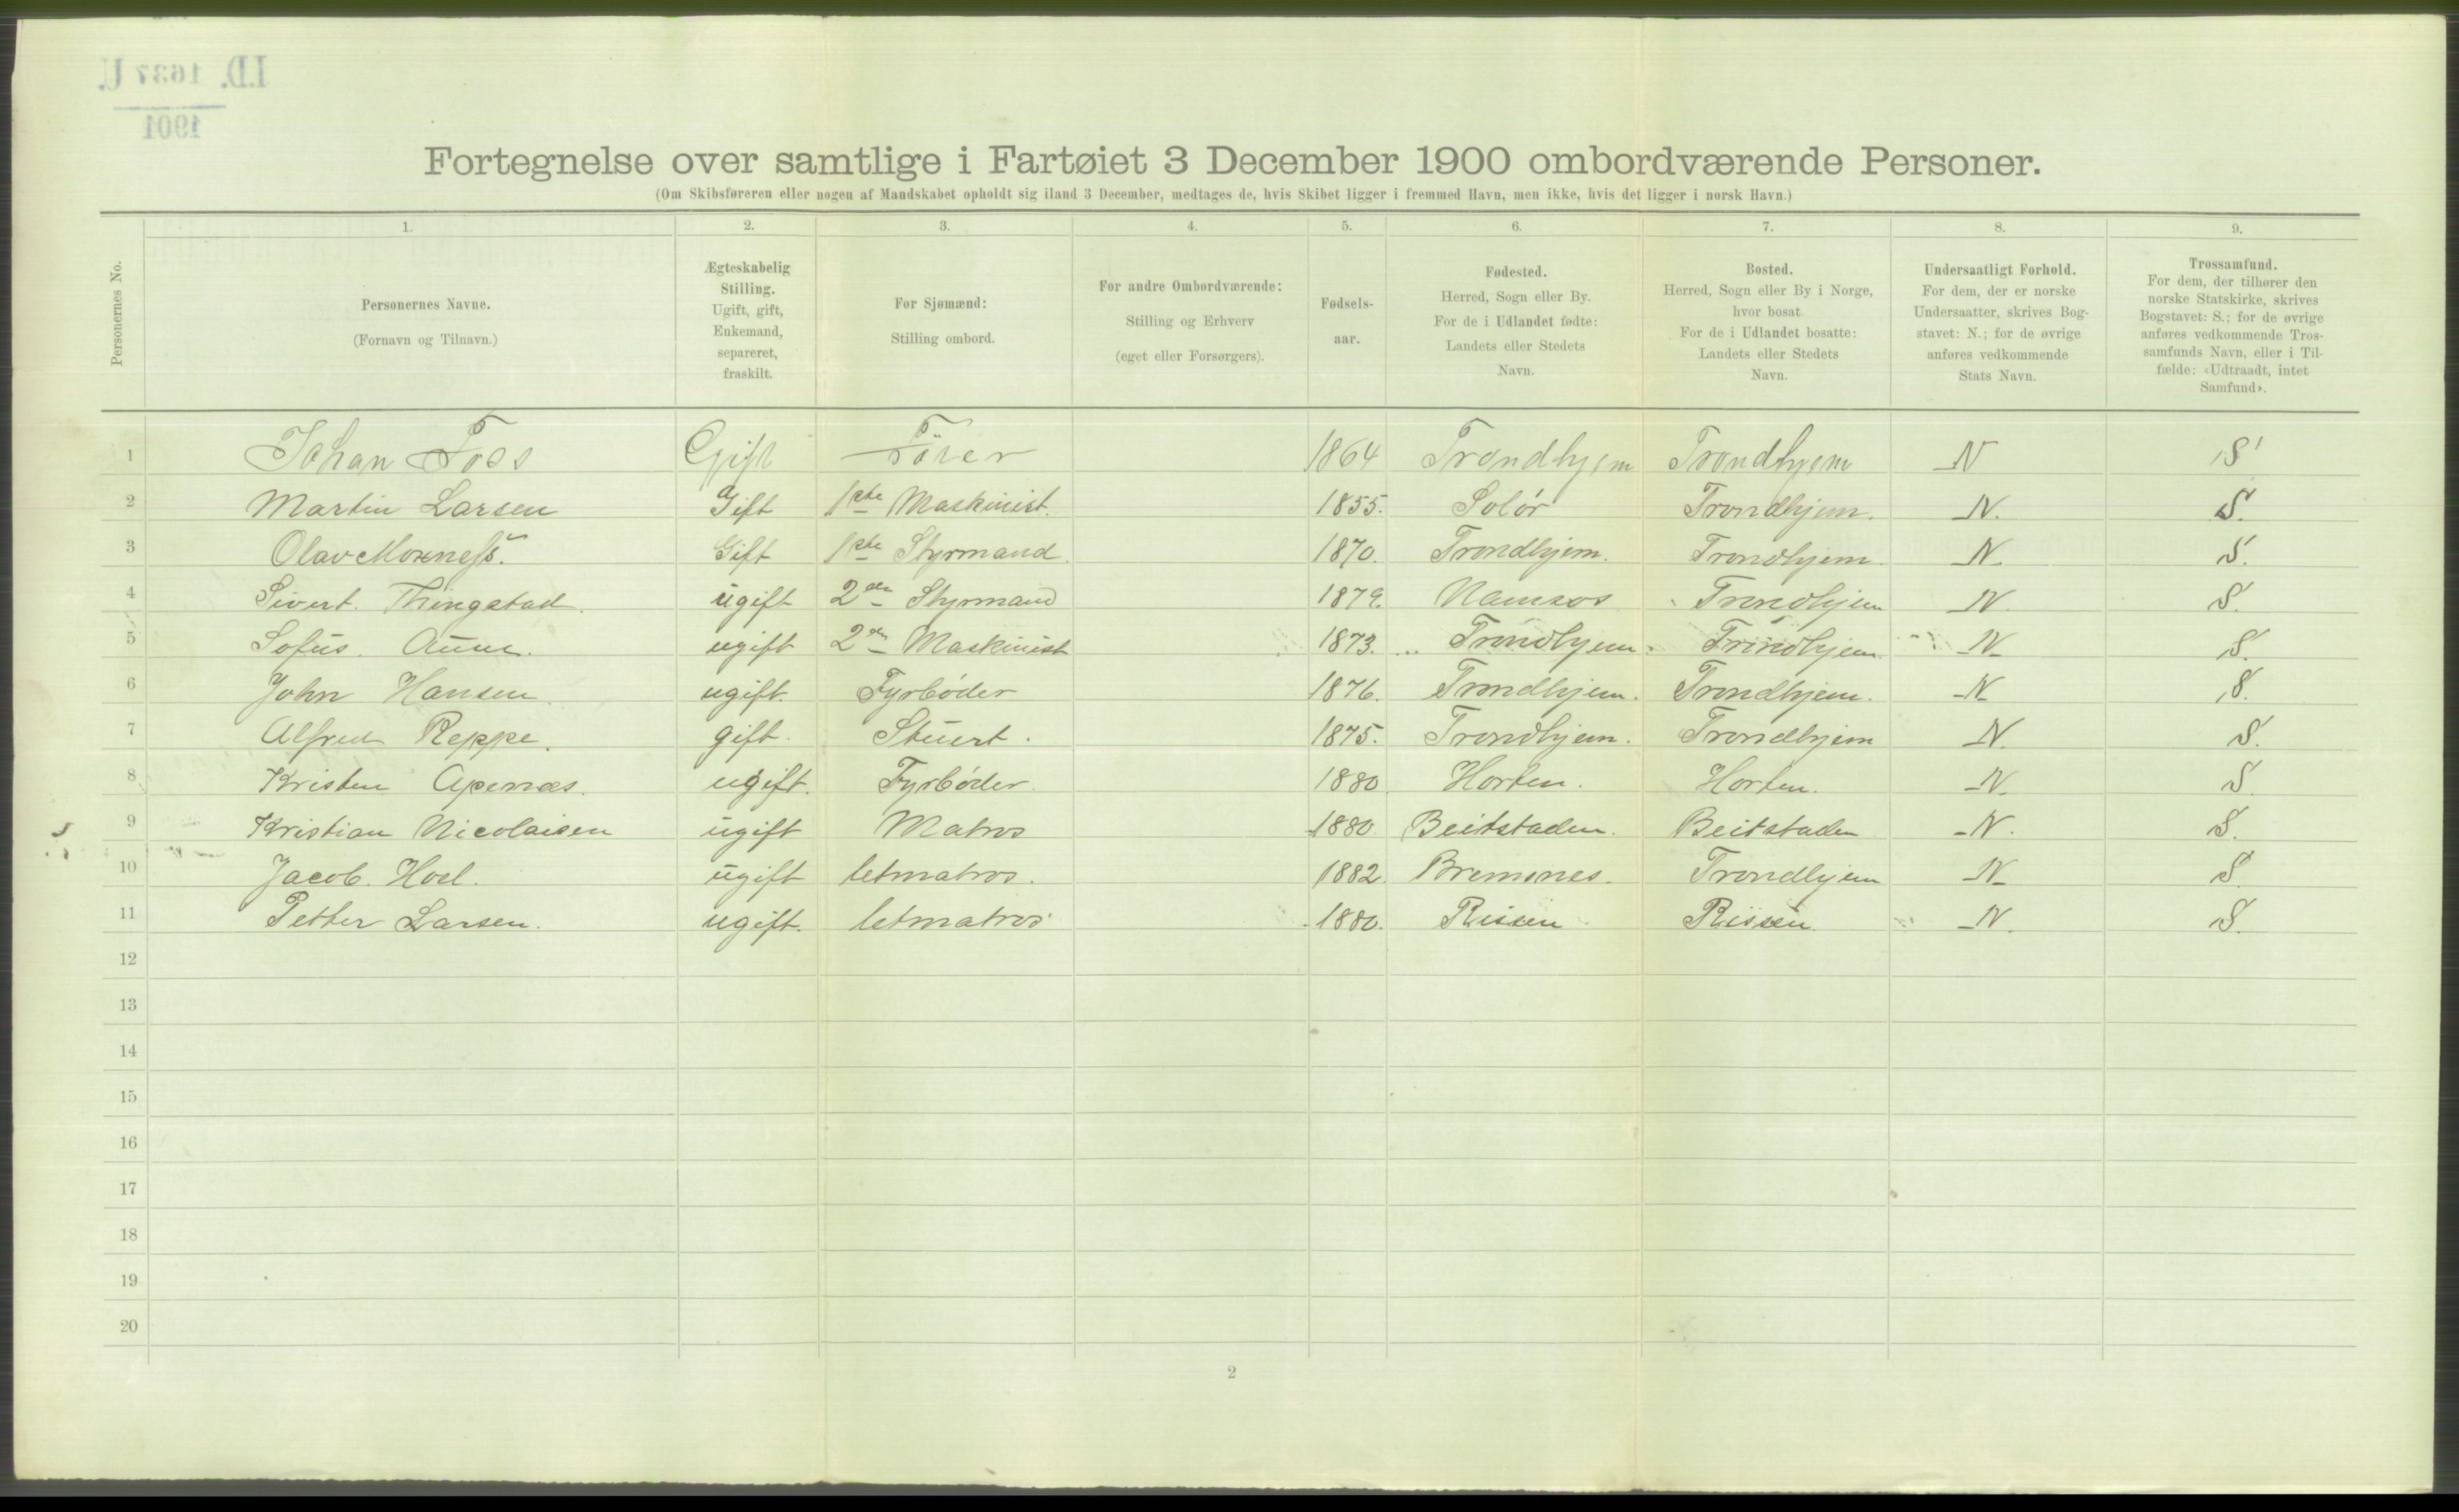 I.D. 1637 U.
1901
Fortegnelse over samtlige i Fartøiet 3 December 1900 ombordværende Personer.
(Om Skibsføreren eller nogen af Mandskabet opholdt sig iland 3 December, medtages de, hvis Skibet ligger i fremmed Havn, men ikke, hvis det ligger i norsk Havn.)
Personernes No.
1.
Personernes Navne.
(Fornavn og Tilnavn.)
2.
Ægteskabelig
Stilling.
Ugift, gift,
Enkemand,
separeret,
fraskilt.
3.
For Sjømænd:
Stilling ombord.
4.
For andre Ombordværende:
Stilling og Erhverv
(eget eller Forsørgers).
5.
Fødsels-
aar.
6.
Fødested.
Herred, Sogn eller By.
For de i Udlandet fødte:
Landets eller Stedets
Navn.
7.
Bosted.
Herred, Sogn eller By i Norge,
hvor bosat.
For de i Udlandet bosatte:
Landets eller Stedets
Navn.
8.
Undersaatligt Forhold.
For dem, der er norske
Undersaatter, skrives Bog-
stavet: N.; for de øvrige
anføres vedkommende
Stats Navn.
9.
Trossamfund.
For dem, der tilhører den
norske Statskirke, skrives
Bogstavet: S.; for de øvrige
anføres vedkommende Tros-
samfunds Navn, eller i Til-
fælde: «Udtraadt, intet
Samfund».
1 Johan Foss Gift Fører 1864 Trondhjem Trondhjem N S
2 Martin Larsen Gift 1ste Maskinist. 1855. Solør Trondhjem. N. S.
3 Olav Moxness. Gift 1ste Styrmand. 1870. Trondhjem. Trondhjem. N. S.
4 Sivert. Thingstad. ugift 2den Styrmand Namsos Trondhjem N. S.
5 Sofus. Aune. ugift 2den Maskinist 1873. Trondhjem. Trondhjem. N S.
6 John Hansen. ugift. Fyrbøder 1876. Trondhjem. Trondhjem. N S.
7 Alfred Reppe. gift. Stuert. 1875. Trondhjem. Trondhjem N. S.
8 Kristen Apenæs. ugift. Fyrbøder. 1880. Horten. Horten. N. S.
9 Kristian Nicolaisen ugift Matros 1880 Beitstaden. Beitstaden N. S.
10 Jacob. Hoel. ugift letmatros. 1882. Bremsnes. Trondhjem N S.
11 Petter Larsen. ugift. letmatros 1880. Rissen Rissen. N. S.
12
13
14
15
16
17
18
19
20
2